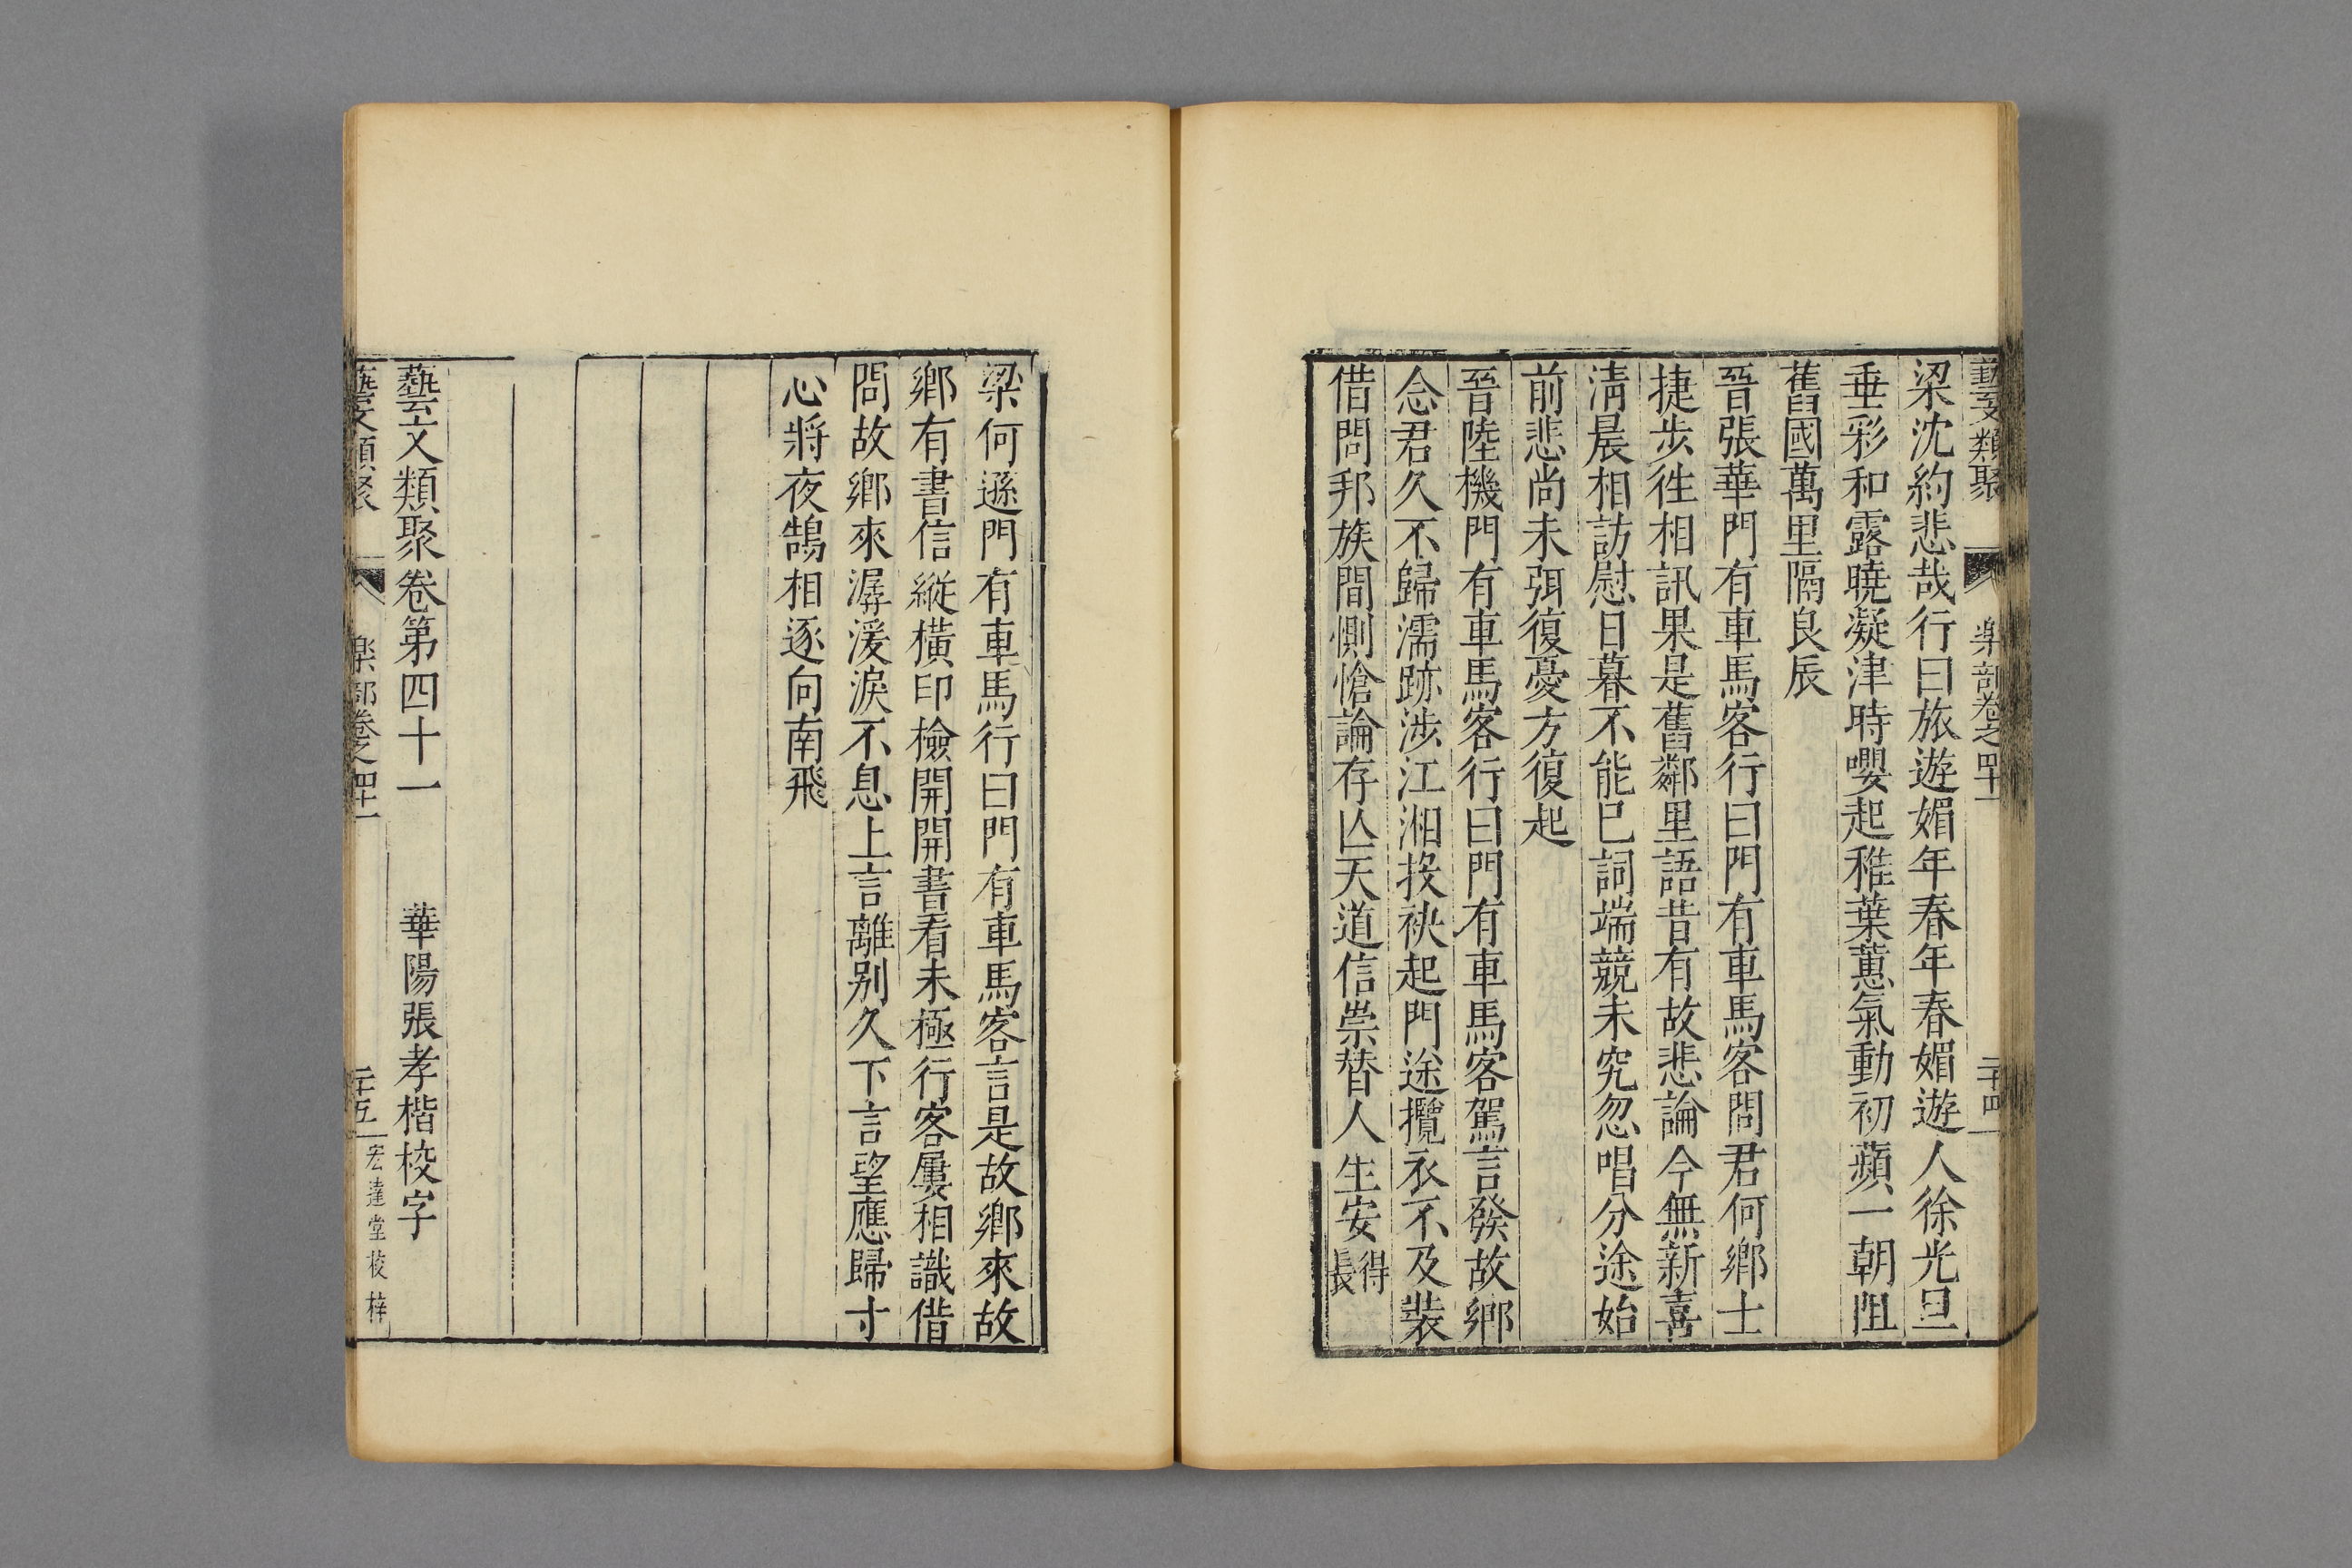 藝文類聚 樂部卷之四十一 二十四
梁沈約悲哉行曰旅遊媚年春年春媚遊人徐光旦
垂彩和露曉凝津時嚶起稚葉蕙氣動初蘋一朝阻
舊國萬里隔良辰
晉張華門有車馬客行曰門有車馬客問君何鄉士
捷步往相訊果是舊鄰里語昔有故悲論今無新喜
淸晨相訪慰日暮不能已詞端競未究忽唱分途始
前悲尚未弭復憂方復起
晉陸機門有車馬客行曰門有車馬客駕言發故鄉
念君久不歸濡跡涉江湘投袂起門途攬衣不及裝
借問邦族間惻愴論存亾天道信崇替人生安得長
梁何遜門有車馬行曰門有車馬客言是故鄉來故
鄉有書信縱橫印檢開開書看未極行客屢相識借
問故鄉來潺湲淚不息上言離别久下言望應歸寸
心將夜鵠相逐向南飛
藝文類聚卷第四十一 華陽張孝楷校字
藝文類聚 樂部卷之四十一 二十五 宏達堂校梓